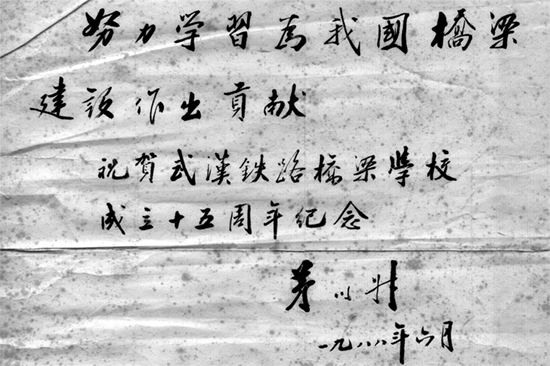 努力学習為我國橋梁
建设作出貢献
祝賀武漢鉄路橋梁學校
成立十五周年纪念
茅以升
一九八八年六月